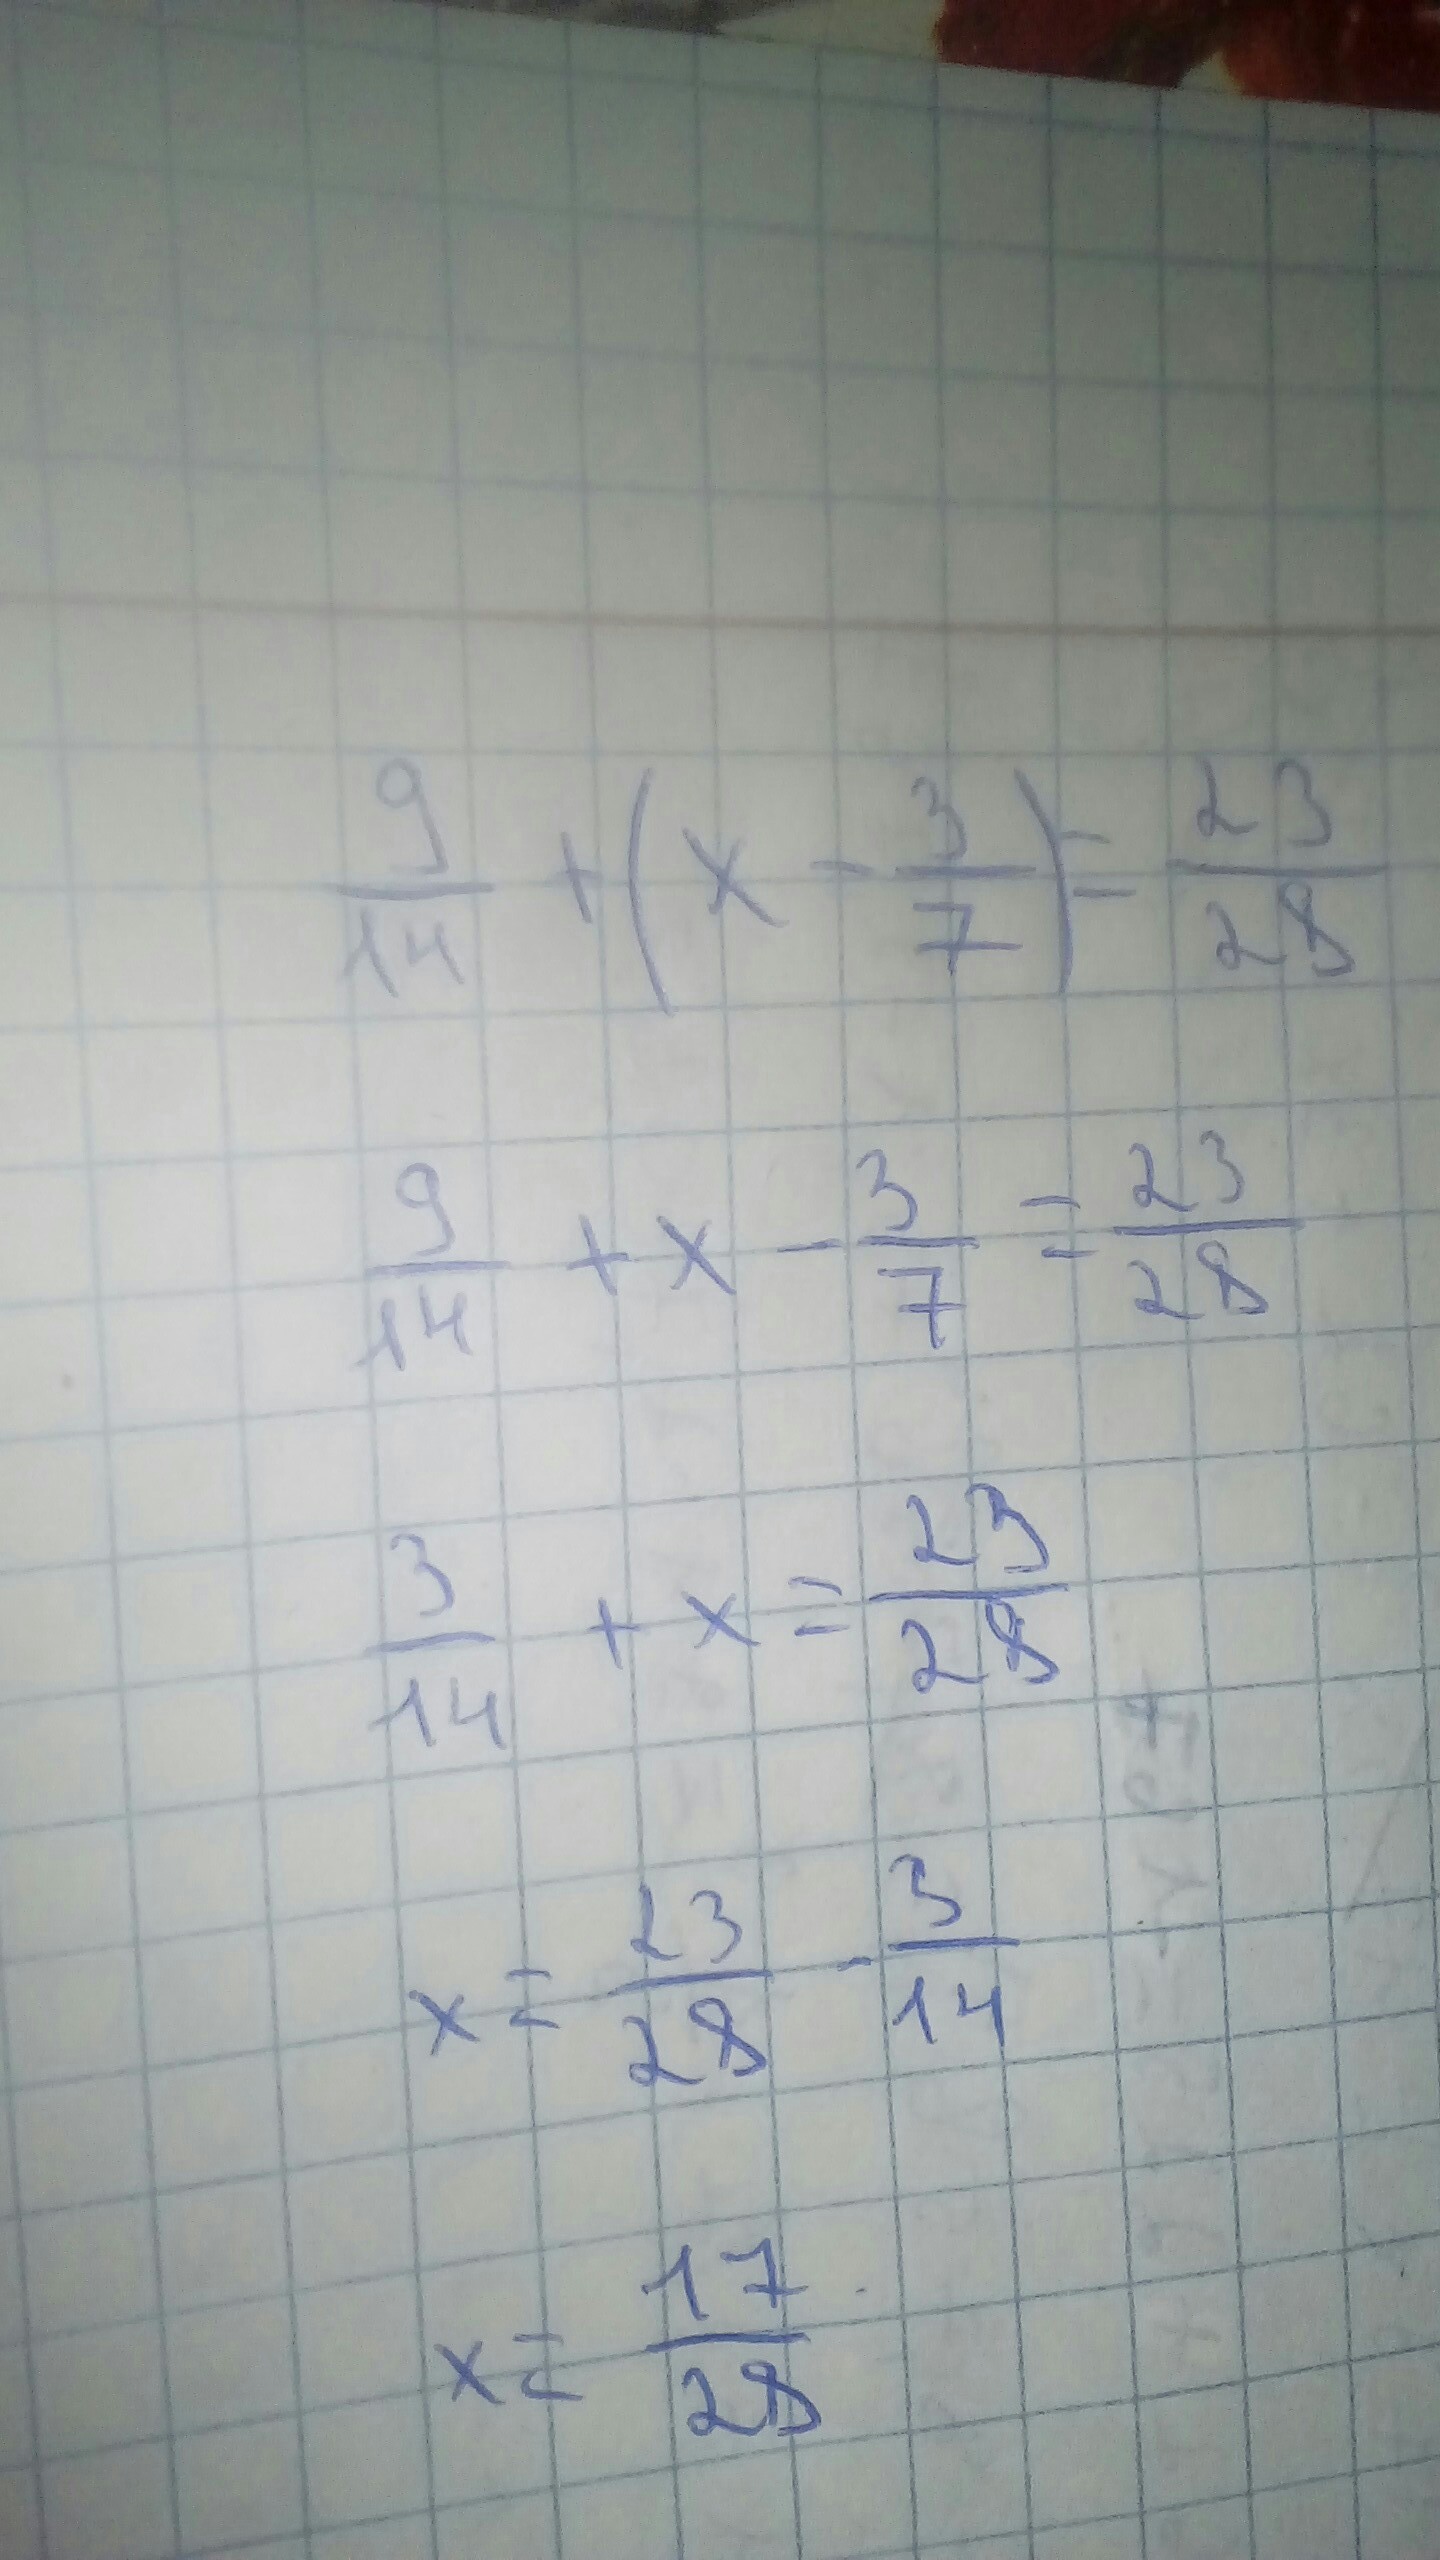 9/14 + (x - 3/7) = 23/28
9/14 + x - 3/7 = 23/28
3/14 + x = 23/28
x = 23/28 - 3/14
x = 17/28